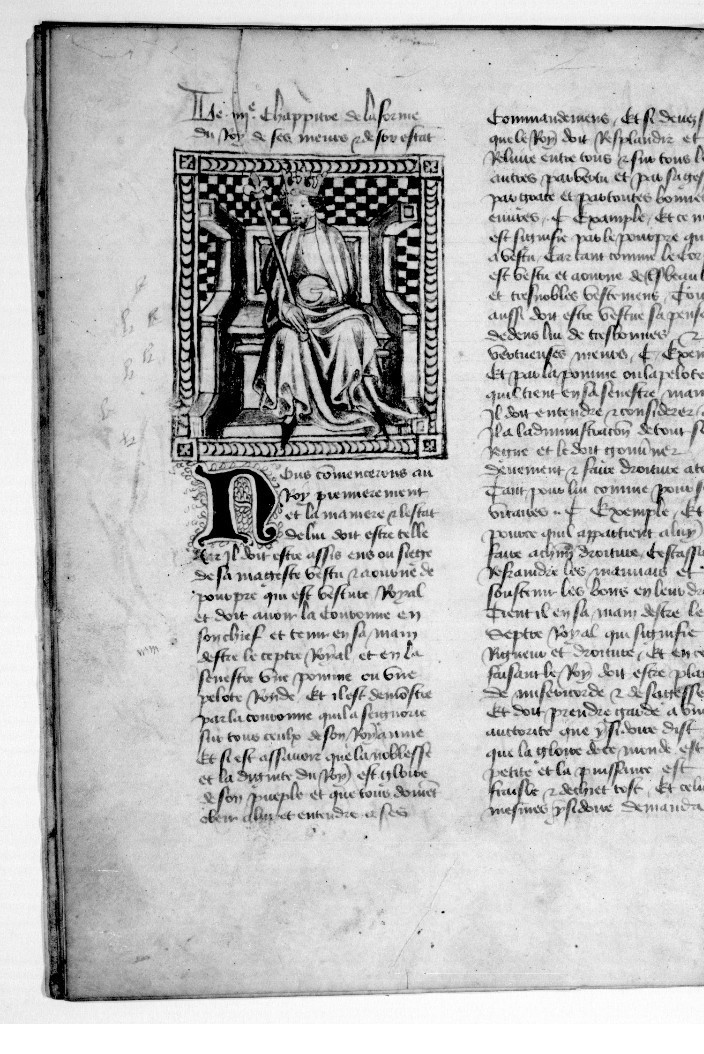 Le .iiije. Chappitre de la forme
du Roy de ses meurs & de son estat
Nous cōmencerons au
Roy premierement
et la maniere & lestat
de lui doit estre telle
Car Il doit estre assis ens ou siege
de sa mageste vestu & aourne de
pourpre qui est vesture Royal
et doit auoir la Couronne en
son chief et tenir en sa main
destre le ceptre Royal et en la
senestre vne pomme ou vne
pelote Ronde Et il est demostre
par la couronne quil a seignorie
sur tous ceulx de son Royaume
Et si est assauoir que la noblesse
et la dignite du Roy est gloire
de son pueple et que tous doiuent
obeir a lui et entendre a ses
Commandemens, Et si deuez s
que le Roy doit Resplandir et
Reluire entre tous & sur tous l
autres par vertu et par sages
par grace et par toutes bonnes
euures, ¶ Example, Et ce n
est signifie par le pourpre qu
a vestu, Car tant comme le Cor
est vestu et aourne de tsbeau
et tresnobles vestemens, Tou
aussi doit estre vestue sa pense
dedens lui de tresbonnes &
vertueuses meurs, ¶ Exem
Et par la pomme ou la pelote
quil tient en sa senestre main
Il doit entendre & considerer
Il a ladministracōn de tout s
Regne et le doit gouuner
deuement & faire droiture a to
Tant pour lui comme pour s
vicaires .. ¶ Exemple, Et
pource quil appartient a luy
faire a chūn droiture, Cest ass
Refraindre les mauuais et
soustenir les bons en leur dr
Tient il en sa main destre le
Septre Royal qui signifie
Rigueur et droiture, Et en ce
faisant le Roy doit estre plai
de misericorde & de sagesse
Et doit prendre garde a vn
auctorite que ysidoire dist
que la gloire de ce monde est
petite et la puissance est
fraisle & dechiet tost, Et celu
mesmes ysidoire demanda